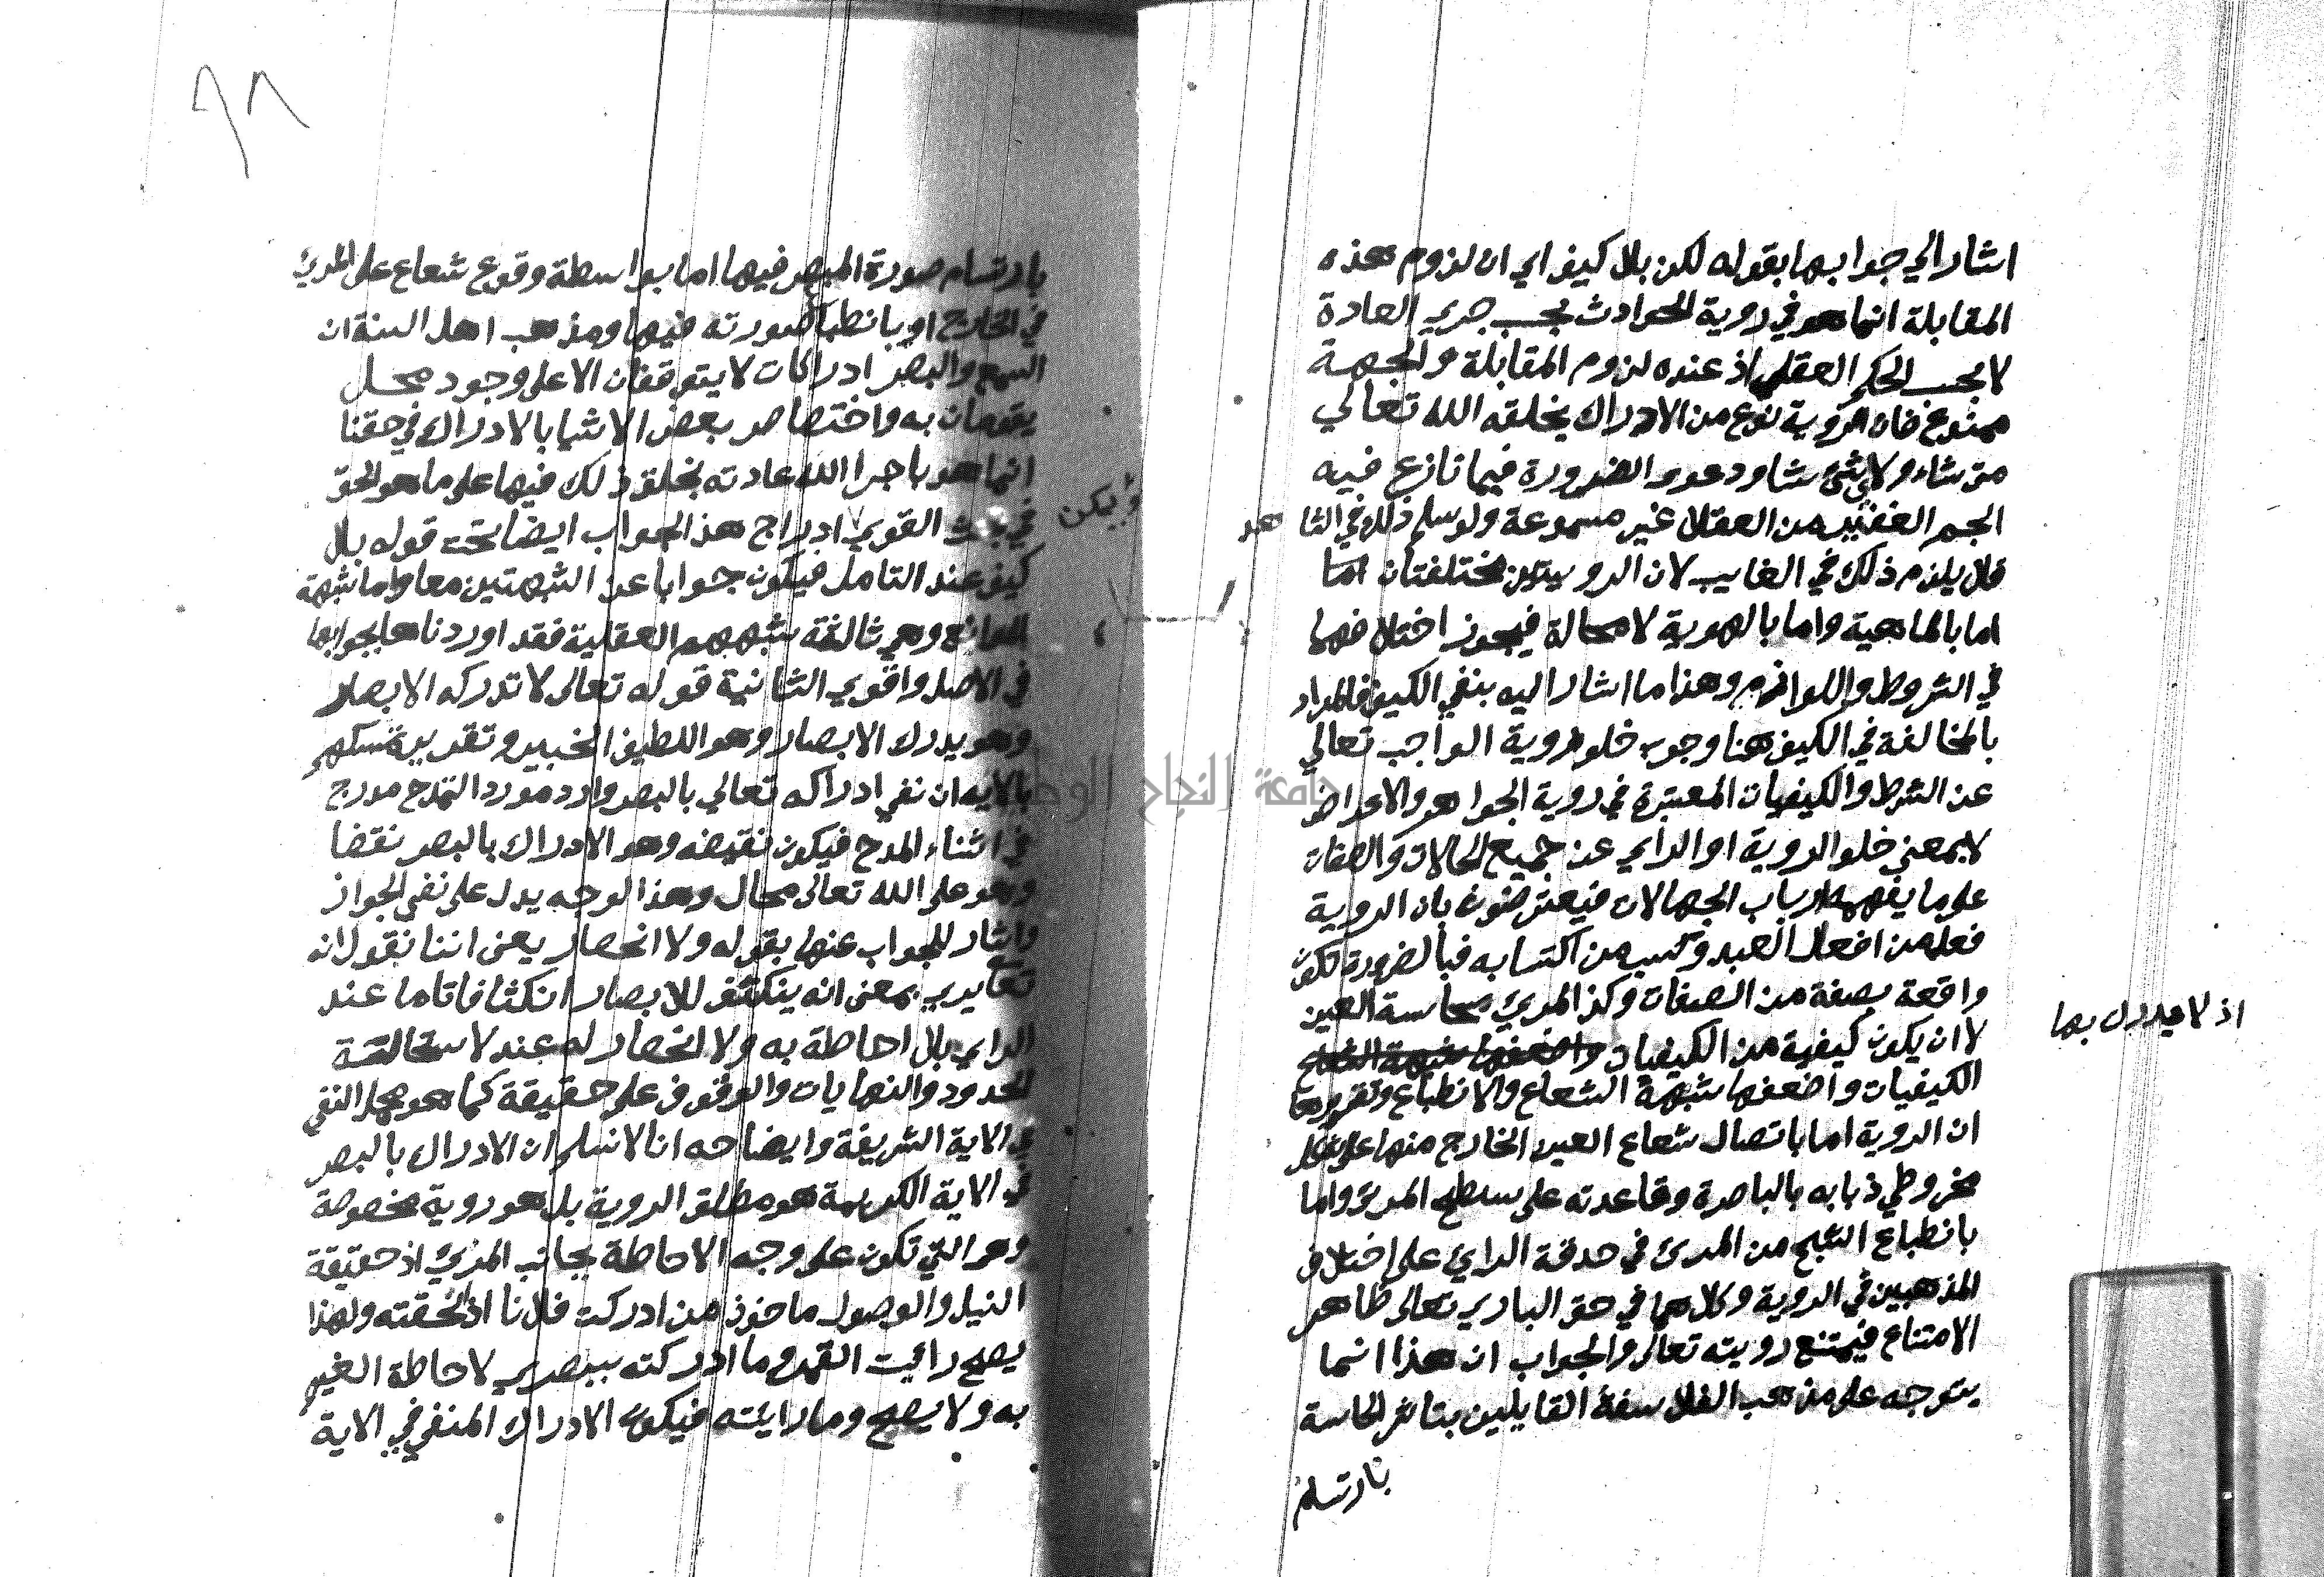 اشار الي جوابها بقوله لكن بلا كيف اي ان لزوم هذه
المقابلة انما هو في روية الحوادث بحسب جري العادة
لا بحسب الحكم العقلي اذ عنده لزوم المقابلة والجهة
ممنوع فان الروية نوع من الادراك يخلقه الله تعالي
متى شاء ولاي شئ شاء ودعوى الضرورة فيما نازع فيه
الجم الغفير من العقلا غير مسموعة ولو سلم ذلك في الشاهد
فلا يلزم ذلك في الغايب لان الرويتين مختلفتان اما
اما بالماهية واما بالهوية لا محالة فيجوز اختلافهما
في الشروط واللوازم وهذا ما اشار اليه بنفي الكيف فالمراد
بالمخالفة في الكيف هنا وجوب خلو روية الواجب تعالي
عن الشرط والكيفيات المعتبرة في روية الجواهر والاعراض
لا بمعني خلو الروية او الراي عن جميع الحالات والصفات
على ما يفهمه ارباب الجهالات فيعترضون بان الروية
فعل من افعال العبد وكسب من اكتسابه فبالضرورة تكون
واقعة بصفة من الصفات وكذا المرئ بحاسة العين
لا ان يكون كيفية من الكيفيات
اذ لا يدرك بها
الكيفيات واضعفها شبهة الشعاع والانطباع وتقريرها
ان الروية اما باتصال شعاع العين الخارج منها على شكل
مخروطي ذبابه بالباصرة وقاعدته على سطح المرئ واما
بانطباع الشبح من المرئ في حدقة الراي على اختلاف
المذهبين في الروية وكلاهما في حق الباري تعالى ظاهر
الامتناع فيمتنع رويته تعالى والجواب ان هذا انما
يتوجه على مذهب الفلاسفة القايلين بتاثر الحاسة
بارتسام
٩٨
بارتسام صورة المبصر فيها اما بواسطة وقوع شعاع على المرئ
في الخارج او بانطباع صورته فيها ومذهب اهل السنة ان
السمع والبصر ادراكات لا يتوقفان الا على وجود محل
يقومان به واختصاص بعض الاشيا بالادراك في حقنا
انما هو باجرا الله عادته بخلق ذلك فيها على ما هو الحق
ويمكن
في بحث القوي ادراج هذا الجواب ايضا تحت قوله بلا
كيف عند التامل فيكون جوابا عن الشبهتين معا واما شبهة
الموانع وهي ثالثة شبههم العقلية فقد اوردناها بجوابها
في الاصل واقوي الثانية قوله تعالى لا تدركه الابصار
وهو يدرك الابصار وهو اللطيف الخبير وتقرير تمسكهم
بالايه ان نفي ادراكه تعالي بالبصر وارد مورد التمدح مدرج
في اثناء المدح فيكون نقيضه وهو الادراك بالبصر نقصا
وهو على الله تعالى محال وهذا الوجه يدل على نفي الجواز
واشار للجواب عنها بقوله ولا انحصار يعنى اننا نقول انه
تعالى يرى بمعنى انه ينكشف للابصار انكشافا تاما عند
الراي بلا احاطة به ولا انحصار له عنده لاستحالة
الحدود والنهايات والوقوف على حقيقة كما هو محمل النفي
في الاية الشريفة وايضاحه انا لا نسلم ان الادراك بالبصر
في الاية الكريمة هو مطلق الروية بل هو روية مخصوصة
وهو التي تكون على وجه الاحاطة بجانب المرئ اذ حقيقة
النيل والوصول ماخوذ من ادركت فلانا اذ الحقته ولهذا
يصح رايت القمر وما ادركته ببصري لاحاطة الغيم
به ولا يصح وما رايته فيكون الادراك المنفي في الاية